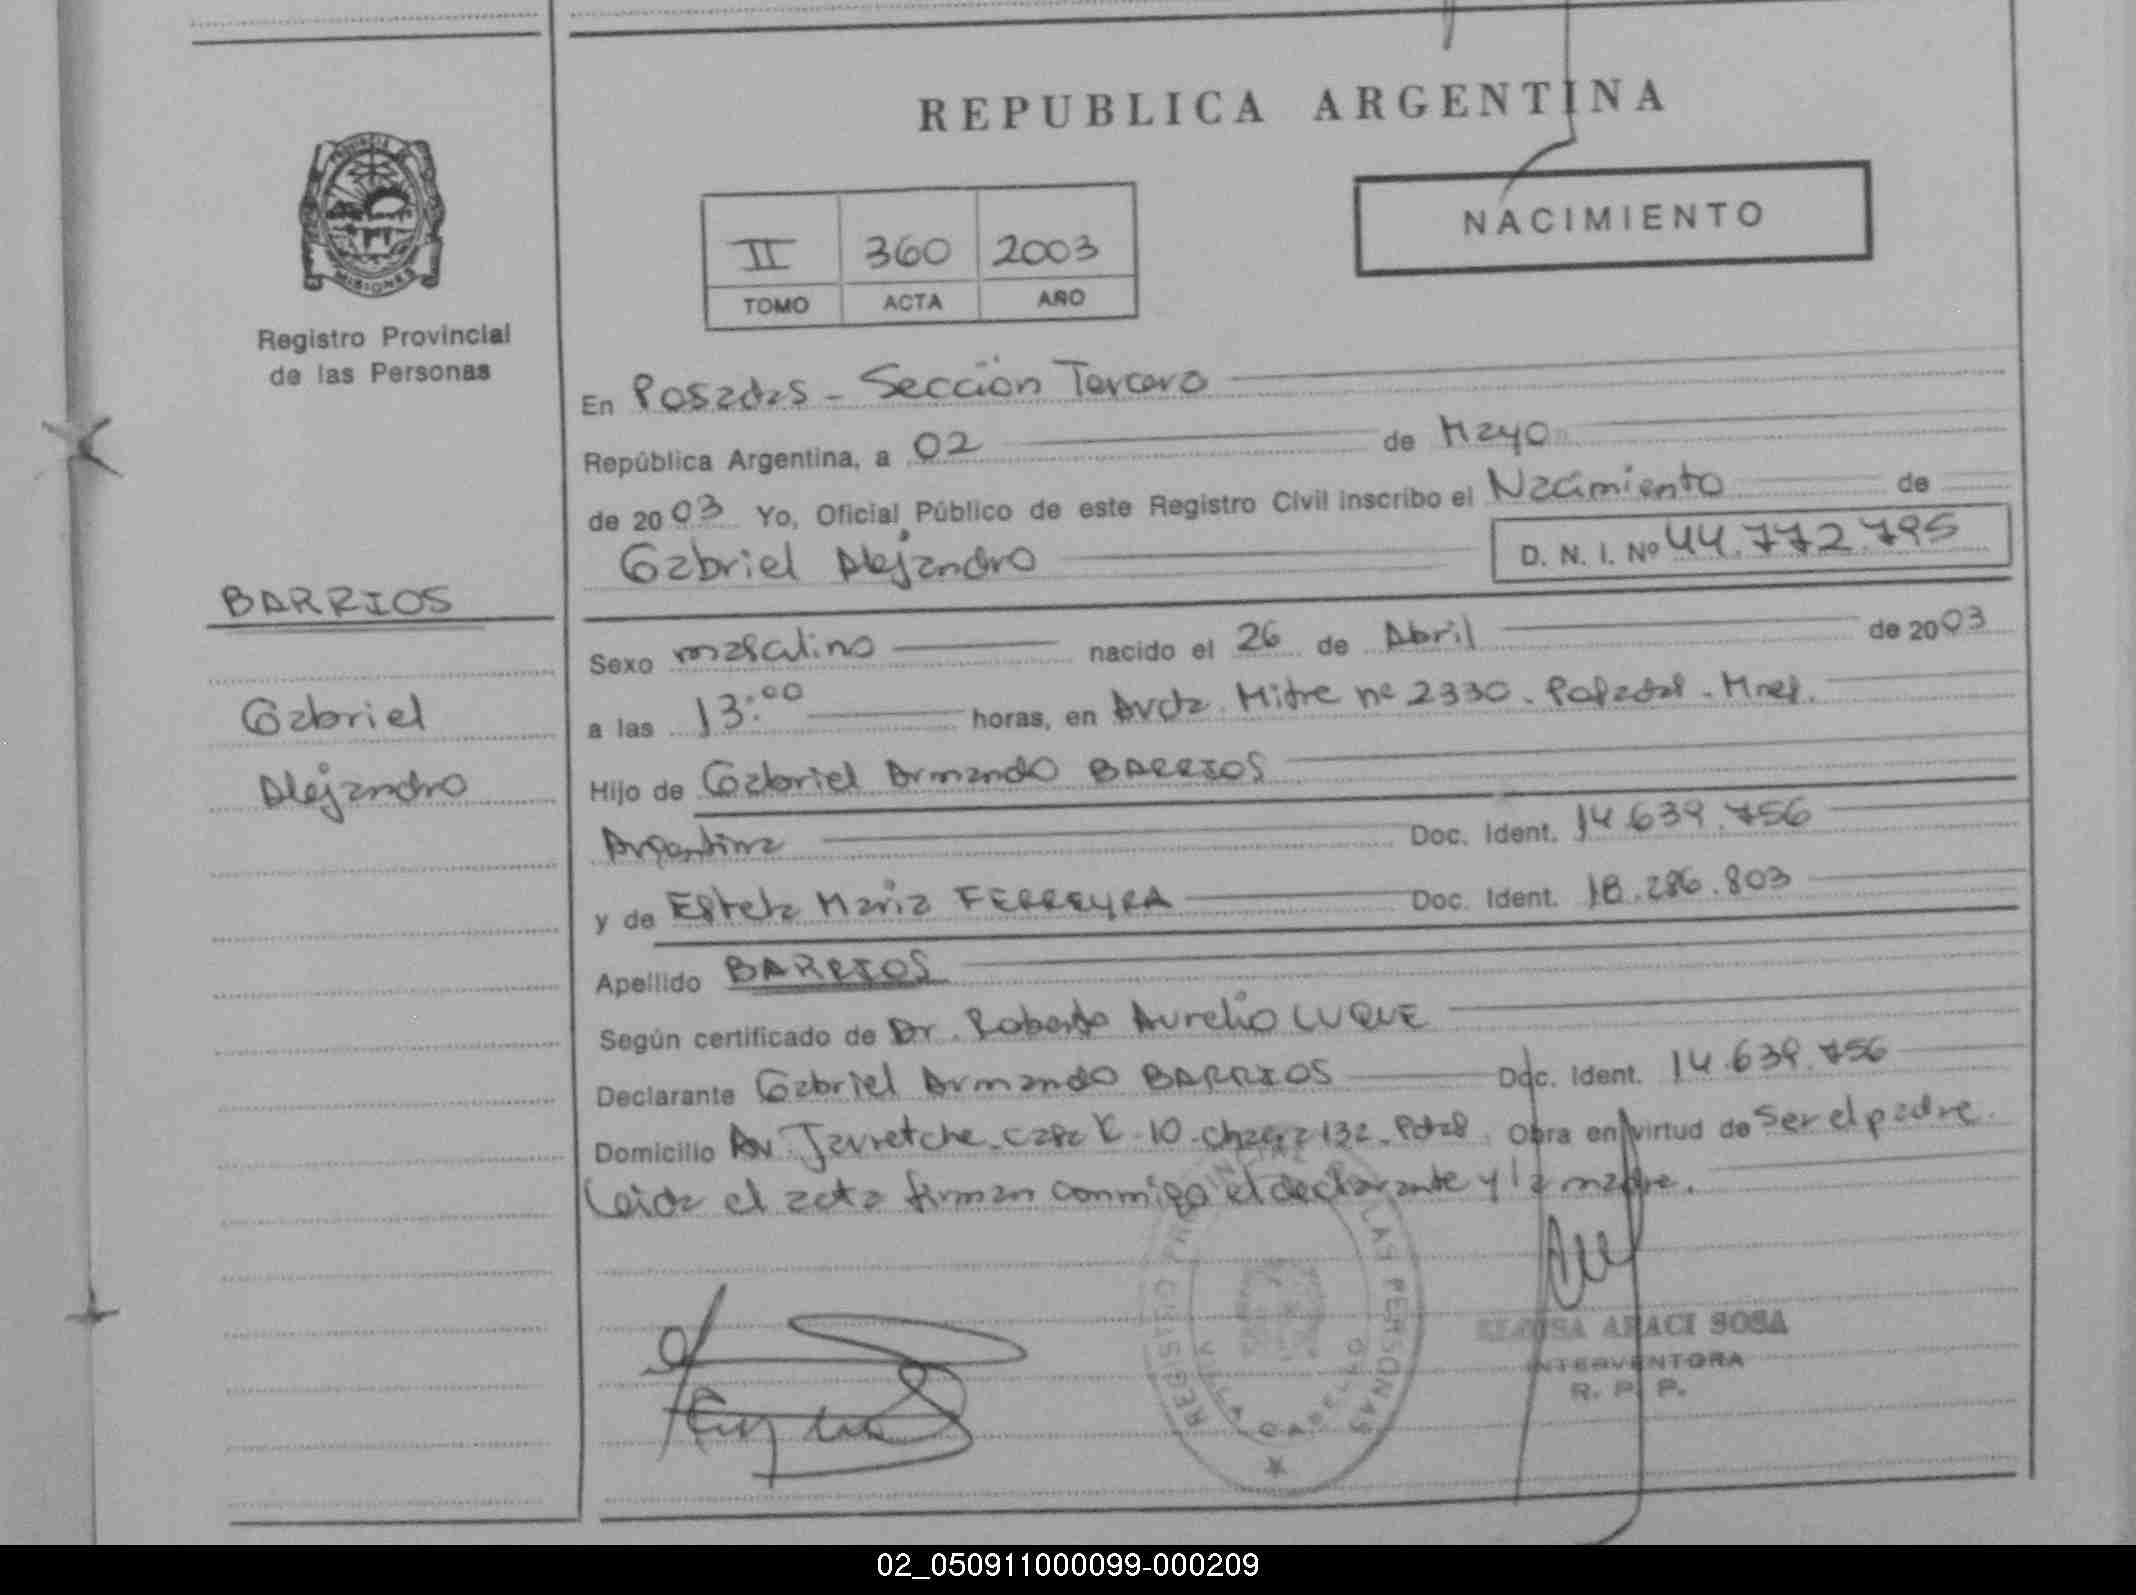 REPUBLICA ARGENTINA
NACIMIENTO
II 360 2003
TOMO ACTA AÑO
PROVINCIA DE
MISIONES
Registro Provincial
de las Personas
BARRIOS
Gabriel
Alejandro
En Posadas - Sección Tercera
República Argentina, a 02 de Mayo
de 2003 Yo, Oficial Público de este Registro Civil inscribo el Nacimiento de
Gabriel Alejandro D. N. I. Nº 44.772.795
Sexo masculino nacido el 26 de Abril de 2003
a las 13:00 horas, en Avda. Mitre nº 2330. Posadas. Mnes.
Hijo de Gabriel Armando BARRIOS
Argentina Doc. Ident. 14.639.756
y de Estela Maria FERREYRA Doc. Ident. 18.286.803
Apellido BARRIOS
Según certificado de Dr. Roberto Aurelio LUQUE
Declarante Gabriel Armando BARRIOS Doc. Ident. 14.639.756
Domicilio Av. Jauretche. casa K-10. chacra 132. Pdas. Obra en virtud de ser el padre.
Leida el acta firman conmigo el declarante y la madre.
LAS PERSONAS
ARACI SOSA
INTERVENTORA
R. P. P.
02_050911000099-000209